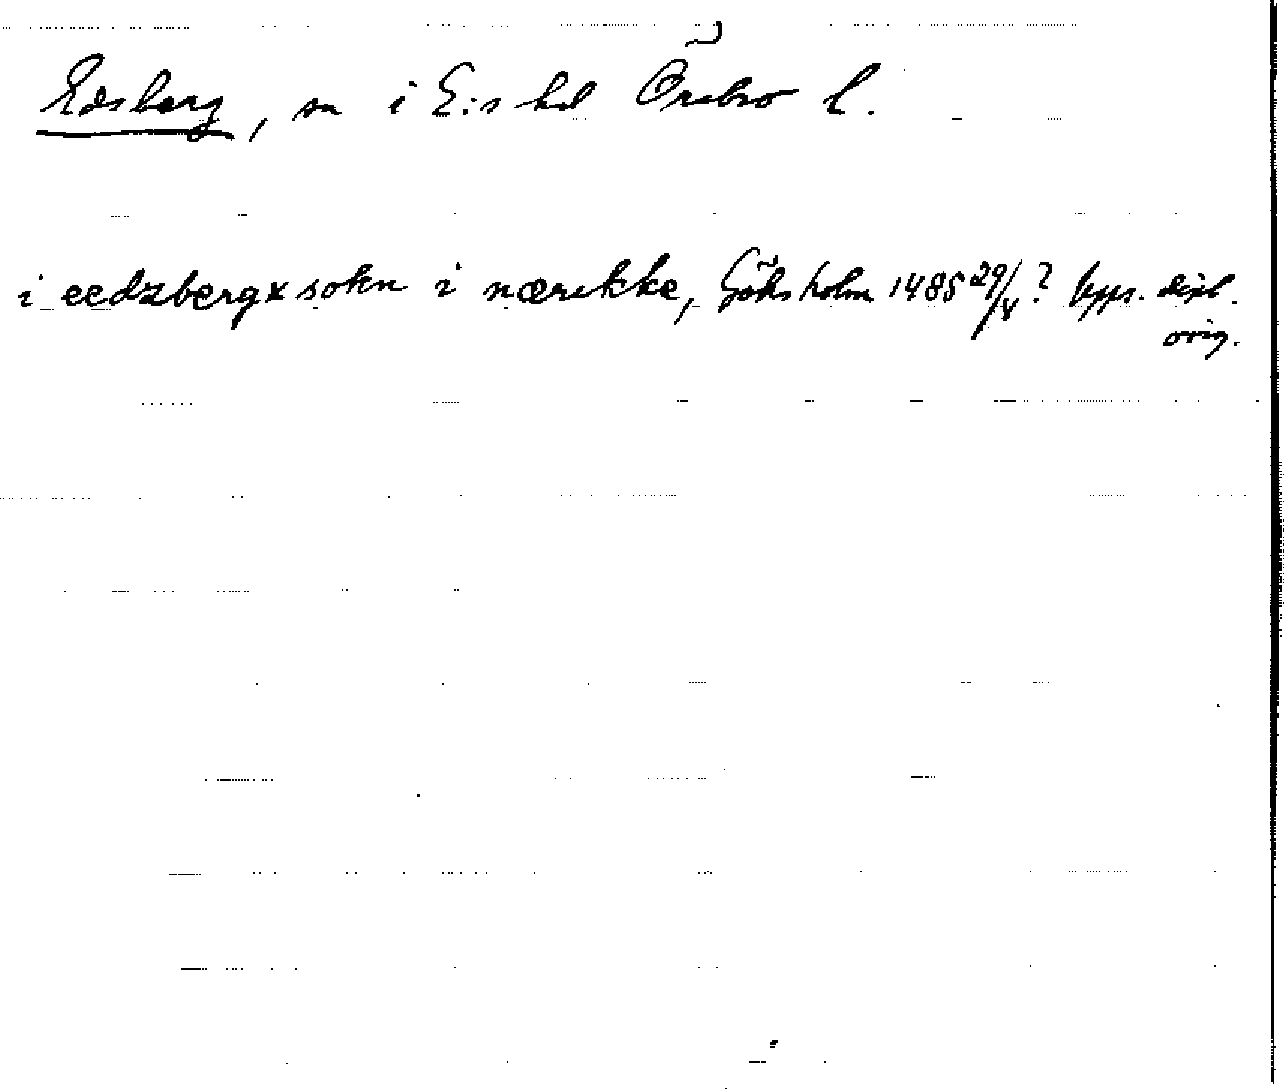 Edsberg, sn i E:s hd Örebro l.
i eedzbergx sokn i nærikke, Göksholm 1485 29/V? Upps. dipl.
orig.